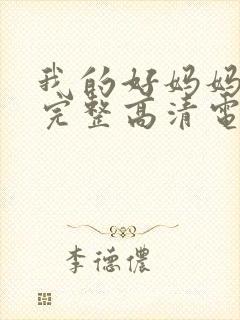 我的好妈妈
完整高清电
李德儂